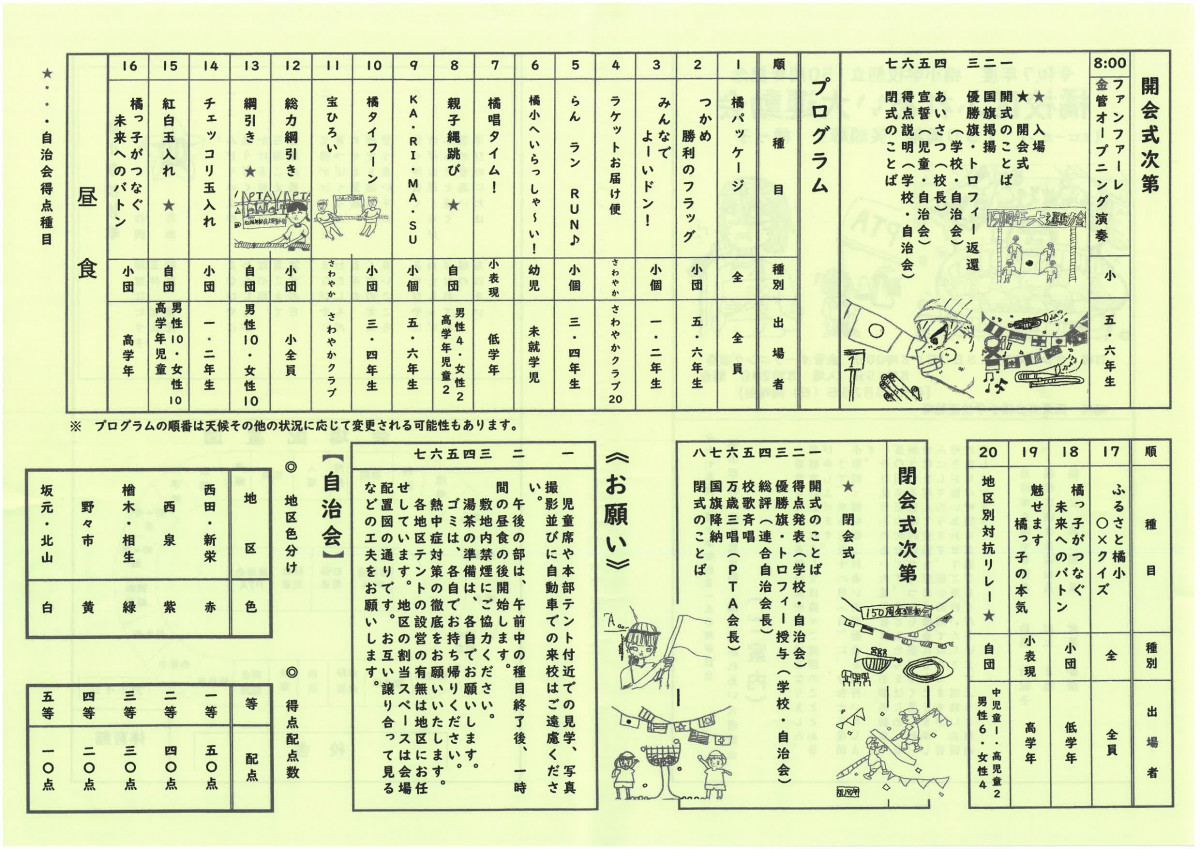 開会式次第
8:00
ファンファーレ
金管オープニング演奏
小
五・六年生
★ 入場
★ 開会式
一 開式のことば
二 国旗掲揚
三 優勝旗・トロフィー返還
(学校・自治会)
四 あいさつ(校長)
五 宣誓(児童・自治会)
六 得点説明(学校・自治会)
七 閉式のことば
プログラム
順 種目 種別 出場者
1 橘パッケージ 全 全員
2 つかめ
勝利のフラッグ 小団 五・六年生
3 みんなで
よーいドン! 小個 一・二年生
4 ラケットお届け便 さわやか さわやかクラブ20
5 らん ラン RUN♪ 小個 三・四年生
6 橘小へいらっしゃ~い! 幼児 未就学児
7 橘唱タイム! 小表現 低学年
8 親子縄跳び ★ 自団 男性4・女性2
高学年児童2
9 KA・RI・MA・SU 小個 五・六年生
10 橘タイフーン 小団 三・四年生
11 宝ひろい さわやか さわやかクラブ
12 総力綱引き 小団 小全員
13 綱引き ★ 自団 男性10・女性10
14 チェッコリ玉入れ 小団 一・二年生
15 紅白玉入れ ★ 自団 男性10・女性10
高学年児童
16 橘っ子がつなぐ
未来へのバトン 小団 高学年
昼食
★・・・自治会得点種目
※ プログラムの順番は天候その他の状況に応じて変更される可能性もあります。
順 種目 種別 出場者
17 ふるさと橘小
〇×クイズ 全 全員
18 橘っ子がつなぐ
未来へのバトン 小団 低学年
19 魅せます
橘っ子の本気 小表現 高学年
20 地区別対抗リレー ★ 自団 中児童1・高児童2
男性6・女性4
閉会式次第
150周年運動会
★ 閉会式
一 開式のことば
二 得点発表(学校・自治会)
三 優勝旗・トロフィー授与(学校・自治会)
四 総評(連合自治会長)
五 校歌斉唱
六 万歳三唱(PTA会長)
七 国旗降納
八 閉式のことば
《お願い》
一 児童席や本部テント付近での見学、写真
撮影並びに自動車での来校はご遠慮くださ
い。
二 午後の部は、午前中の種目終了後、一時
間の昼食の後開始します。
三 敷地内禁煙にご協力ください。
四 湯茶の準備は、各自でお願いします。
五 ゴミは、各自でお持ち帰りください。
六 熱中症対策の徹底をお願いいたします。
七 各地区テントの設営の有無は地区にお任
せしています。地区の割当スペースは会場
配置図の通りです。お互い譲り合って見る
などの工夫をお願いします。
【自治会】
◎ 地区色分け
地区 色
西田・新栄 赤
西泉 紫
楢木・相生 緑
野々市 黄
坂元・北山 白
◎ 得点配点数
等 配点
一等 五〇点
二等 四〇点
三等 三〇点
四等 二〇点
五等 一〇点